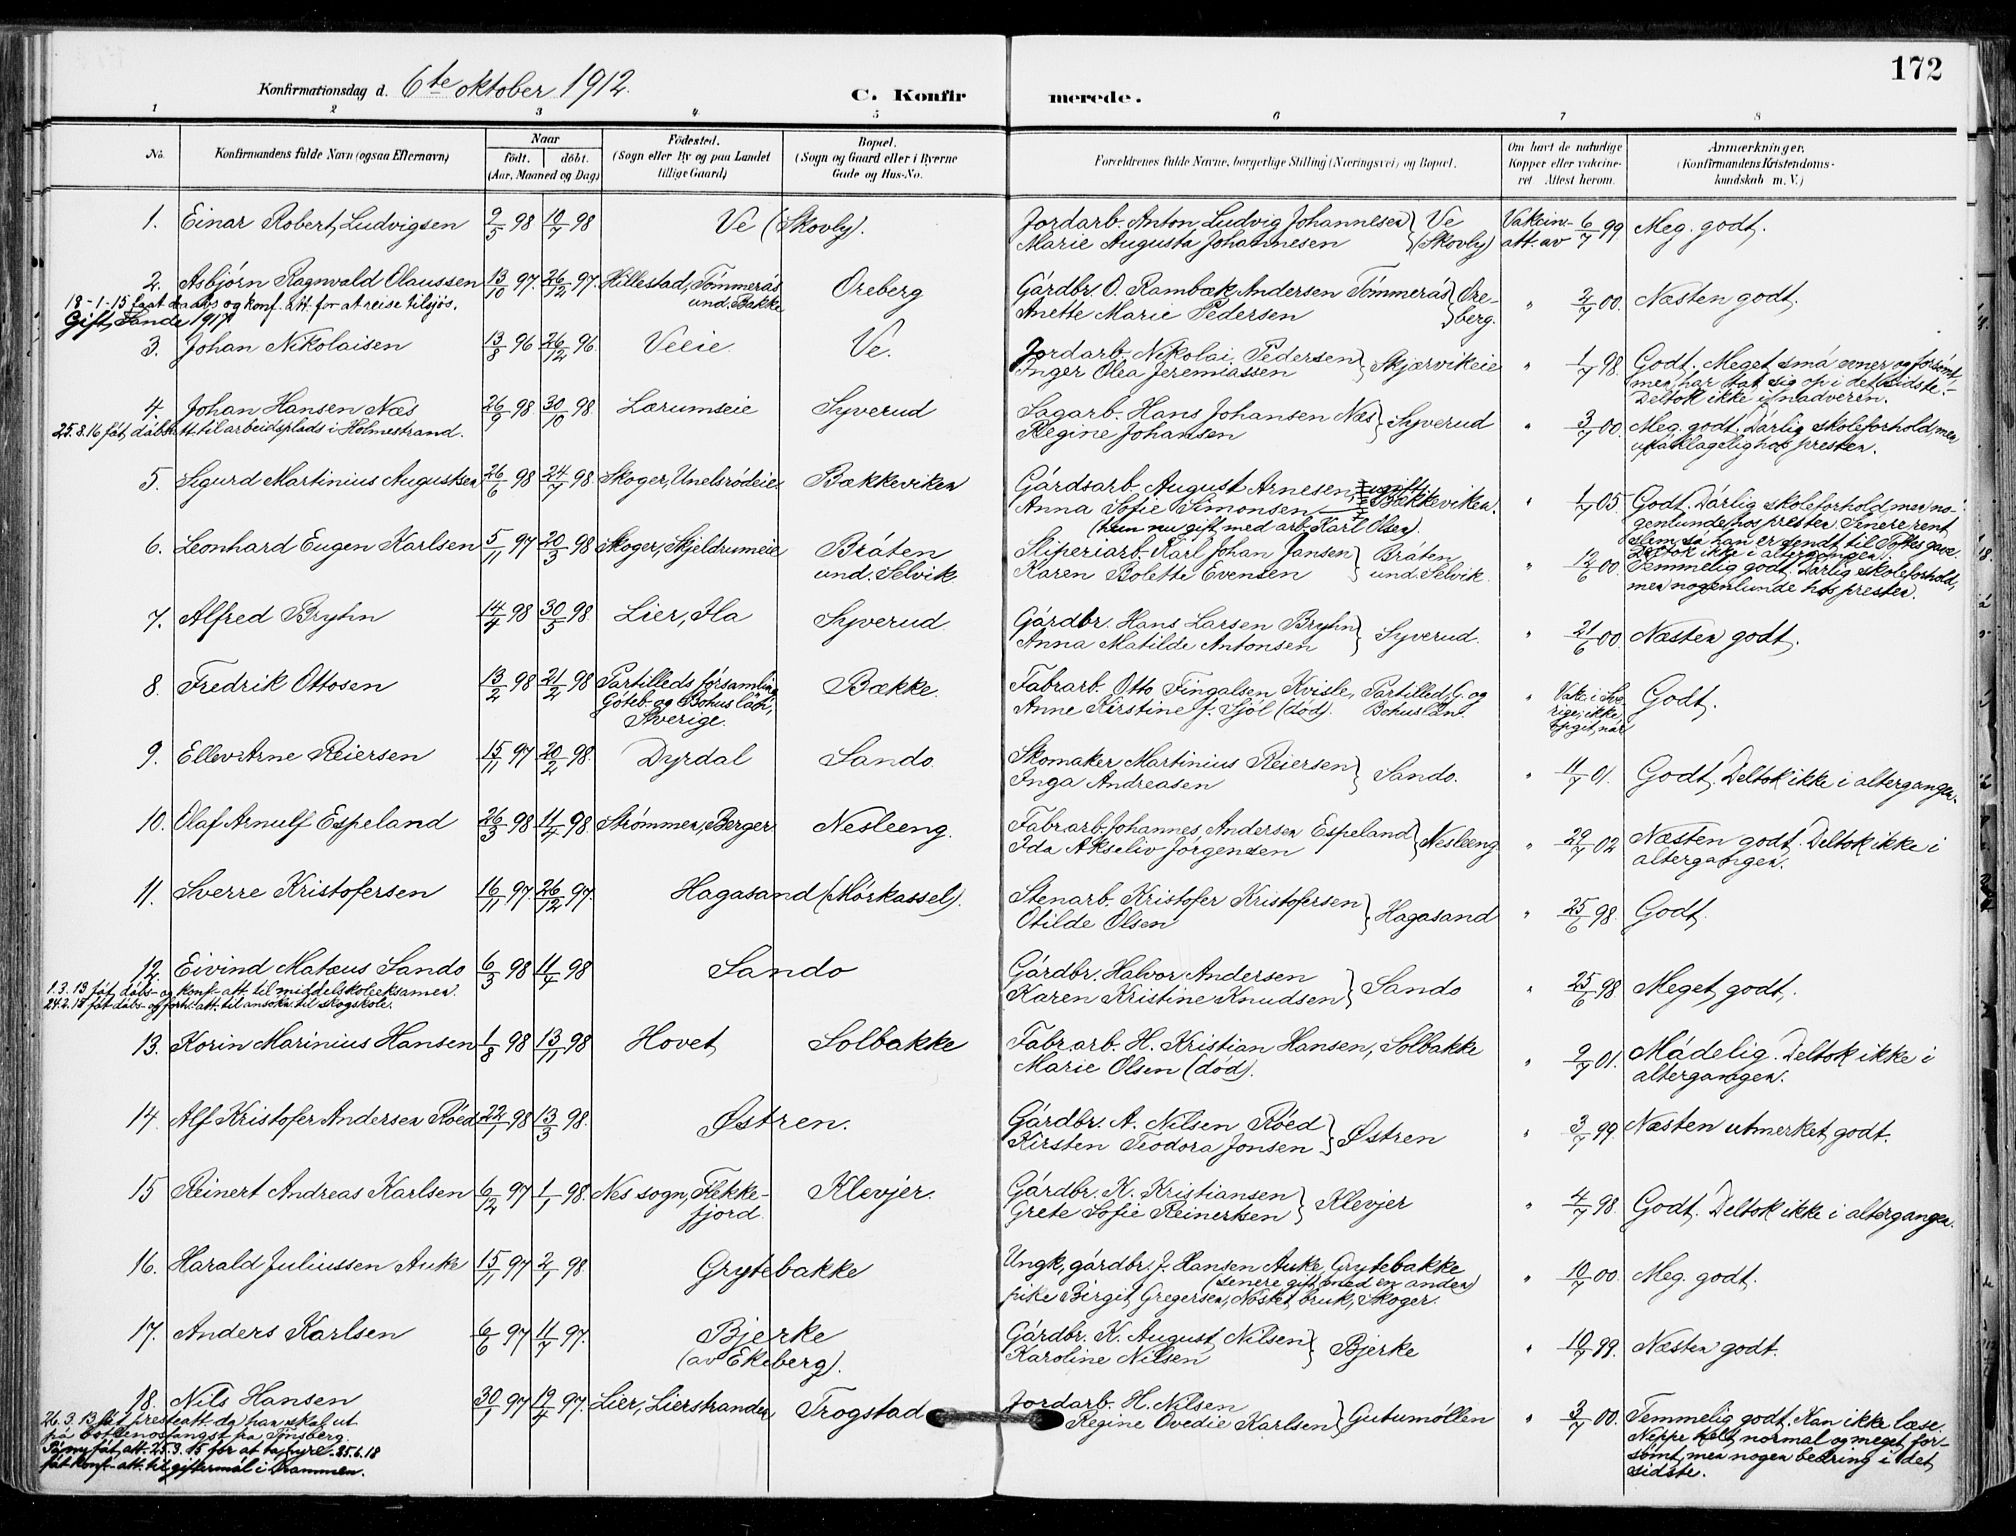 172
Konfirmationsdag d. 6te oktober 1912.
C. Konfirmerede.
1 2 3 4 5 6 7 8
No. Konfirmandens fulde Navn (ogsaa Efternavn) Naar født. døbt. (Aar, Maaned og Dag) Födested. (Sogn eller By og paa Landet tillige Gaard) Bopæl. (Sogn og Gaard eller i Byerne Gade og Hus-No. Forældrenes fulde Navne, borgerlige Stilling (Næringsvei) og Bopæl. Om havt de naturlige Kopper eller vakcineret. Attest herom. Anmærkninger. (Konfirmandens Kristendomskundskab m. V.)
1. Einar Robert Ludvigsen 9/5 98 10/7 98 Ve (Skovby). Jordarb. Anton Ludvig Johannesen } Ve Vakcin- 6/7 99 Meg. godt.
Marie Augusta Johannesen (Skovby) att. av
2. Asbjörn Ragnvald Olaussen 13/10 97. 26/12 97. Hillestad, Tömmerås Oreberg Gårdbr. O. Rambæk Andersen Tömmerås } Ore- " 2/7 00. Næsten godt.
18-1-15 faat daabs og konf. att. for at reise tilsjös. und. Bakke Anette Marie Pedersen berg.
Gift, Sande 1917.
3. Johan Nikolaisen 13/8 96 26/12 96 Veeie. Ve. Jordarb. Nikolai Pedersen } Skjærvikeie " 1/7 98 Godt. Meget små evner og forsömt,
Inger Olea Jeremiassen men har tat sig op i det sidste.
Deltok ikke i nadveren.
4. Johan Hansen Næs 26/9 98 30/10 98 Lærumseie Syverud Sagarb. Hans Johansen Næs } Syverud " 3/7 00. Meg. godt. Dårlig skoleforhold, men
25.8.16 fåt dåbsatt. til arbeidsplads i Holmestrand. Regine Johansen upåklagelig hos presten.
5. Sigurd Martinius Augustsen 26/6 98 24/7 98 Skoger, Unelsrödeie Bækkeviken Gårdsarb. August Arnesen, ugift } Bækkeviken. " 1/7 05. Godt. Dårlig skoleforhold, men no-
Anna Sofie Simonsen genlunde hos presten. Senere rent
(hun nu gift med arb. Karl Olsen). slem så han er sendt til Toftes gave.
Deltok ikke i altergangen.
6. Leonhard Eugen Karlsen 5/11 97 20/3 98 Skoger, Skjeldrumeie Bråten Sliperiarb. Karl Johan Jansen } Bråten " 12/6 00. Temmelig godt. Dårlig skoleforhold,
und. Selvik. Karen Bolette Evensen und. Selvik. men nogenlunde hos presten.
7. Alfred Bryhn 14/4 98 30/5 98. Lier, Ila Syverud. Gårdbr. Hans Larsen Bryhn } Syverud. " 21/6 00. Næsten godt.
Anna Matilde Antonsen
8. Fredrik Ottosen 13/2 98 21/2 98 Partilleds församling Bække. Fabrarb. Otto Fingalsen Kvisle, Partilled, G. og " Vakc. i Sve- Godt.
Göteb. og Bohus län, Anne Kirstine f. Sjöl (död). Bohuslän. rige, ikke
Sverige. opgit, når
9. Ellev Arne Reiersen 15/11 97 20/2 98. Dyrdal Sando Skomaker Martinius Reiersen } Sando. " 11/7 01. Godt. Deltok ikke i altergangen.
Inga Andreasen
10. Olaf Arnulf Espeland 26/3 98 11/4 98. Strömmen, Berger Nesleeng. Fabrarb. Johannes Andersen Espeland } Nesleeng " 29/7 02 Næsten godt. Deltok ikke i
Ida Akseliv Jörgensen altergangen.
11. Sverre Kristofersen 16/11 97. 26/12 97. Hagasand (Mörkassel). Stenarb. Kristofer Kristofersen } Hagasand " 25/6 98 Godt.
Otilde Olsen
12. Eivind Mateus Sando 6/3 98 11/4 98 Sando Gårdbr. Halvor Andersen } Sando " 25/6 98 Meget godt.
1.3.13 fåt dåbs- og konf-att. til middelskoleeksamen. Karen Kristine Knudsen
13. Korin Marinius Hansen 1/8 98 13/11 98 Hovet Solbakke Fabr.arb. H. Kristian Hansen, Solbakke " 9/7 01. Mådelig. Deltok ikke i
Marie Olsen (död). altergangen.
14. Alf Kristofer Andersen Röed 22/1 98 13/3 98. Østren. Gårdbr. A. Nilsen Röed } Østren " 3/7 99. Næsten utmerket godt.
Kirsten Teodora Jonsen
15 Reinert Andreas Karlsen 6/12 97 1/1 98. Nes sogn, Flekke- Klevjer. Gårdbr. K. Kristiansen } Klevjer " 4/7 98. Godt. Deltok ikke i altergangen.
fjord. Grete Sofie Reinertsen
16. Harald Juliussen Auke 15/11 97 2/1 98 Grytebakke Ungk, gårdbr. J. Hansen Auke, Grytebakke " 10/7 00. Meg. godt.
(senere gift med en anden)
pike Birgit Gregersen, Nöstet bruk, Skoger.
17. Anders Karlsen 6/6 97 11/7 97. Bjerke Gårdbr. K. August Nilsen } Bjerke " 10/7 99. Næsten godt.
(av Ekeberg). Karoline Nilsen
18. Nils Hansen 30/1 97 19/4 97. Lier, Lierstranden Trogstad Jordarb. H. Nilsen } Gutumøllen " 3/7 00. Temmelig godt. Kan ikke læse.
26.3.13 fåt presteatt. da han skal ut Regine Ovedie Karlsen Neppe helt normal og meget for-
på bottlenosfangst fra Tönsberg. sömt, men nogen bedring i det
På ny fåt att. 25.3.15 for at ta hyre. 25.6.18 sidste.
fåt konf-att. til giftermål i Drammen.